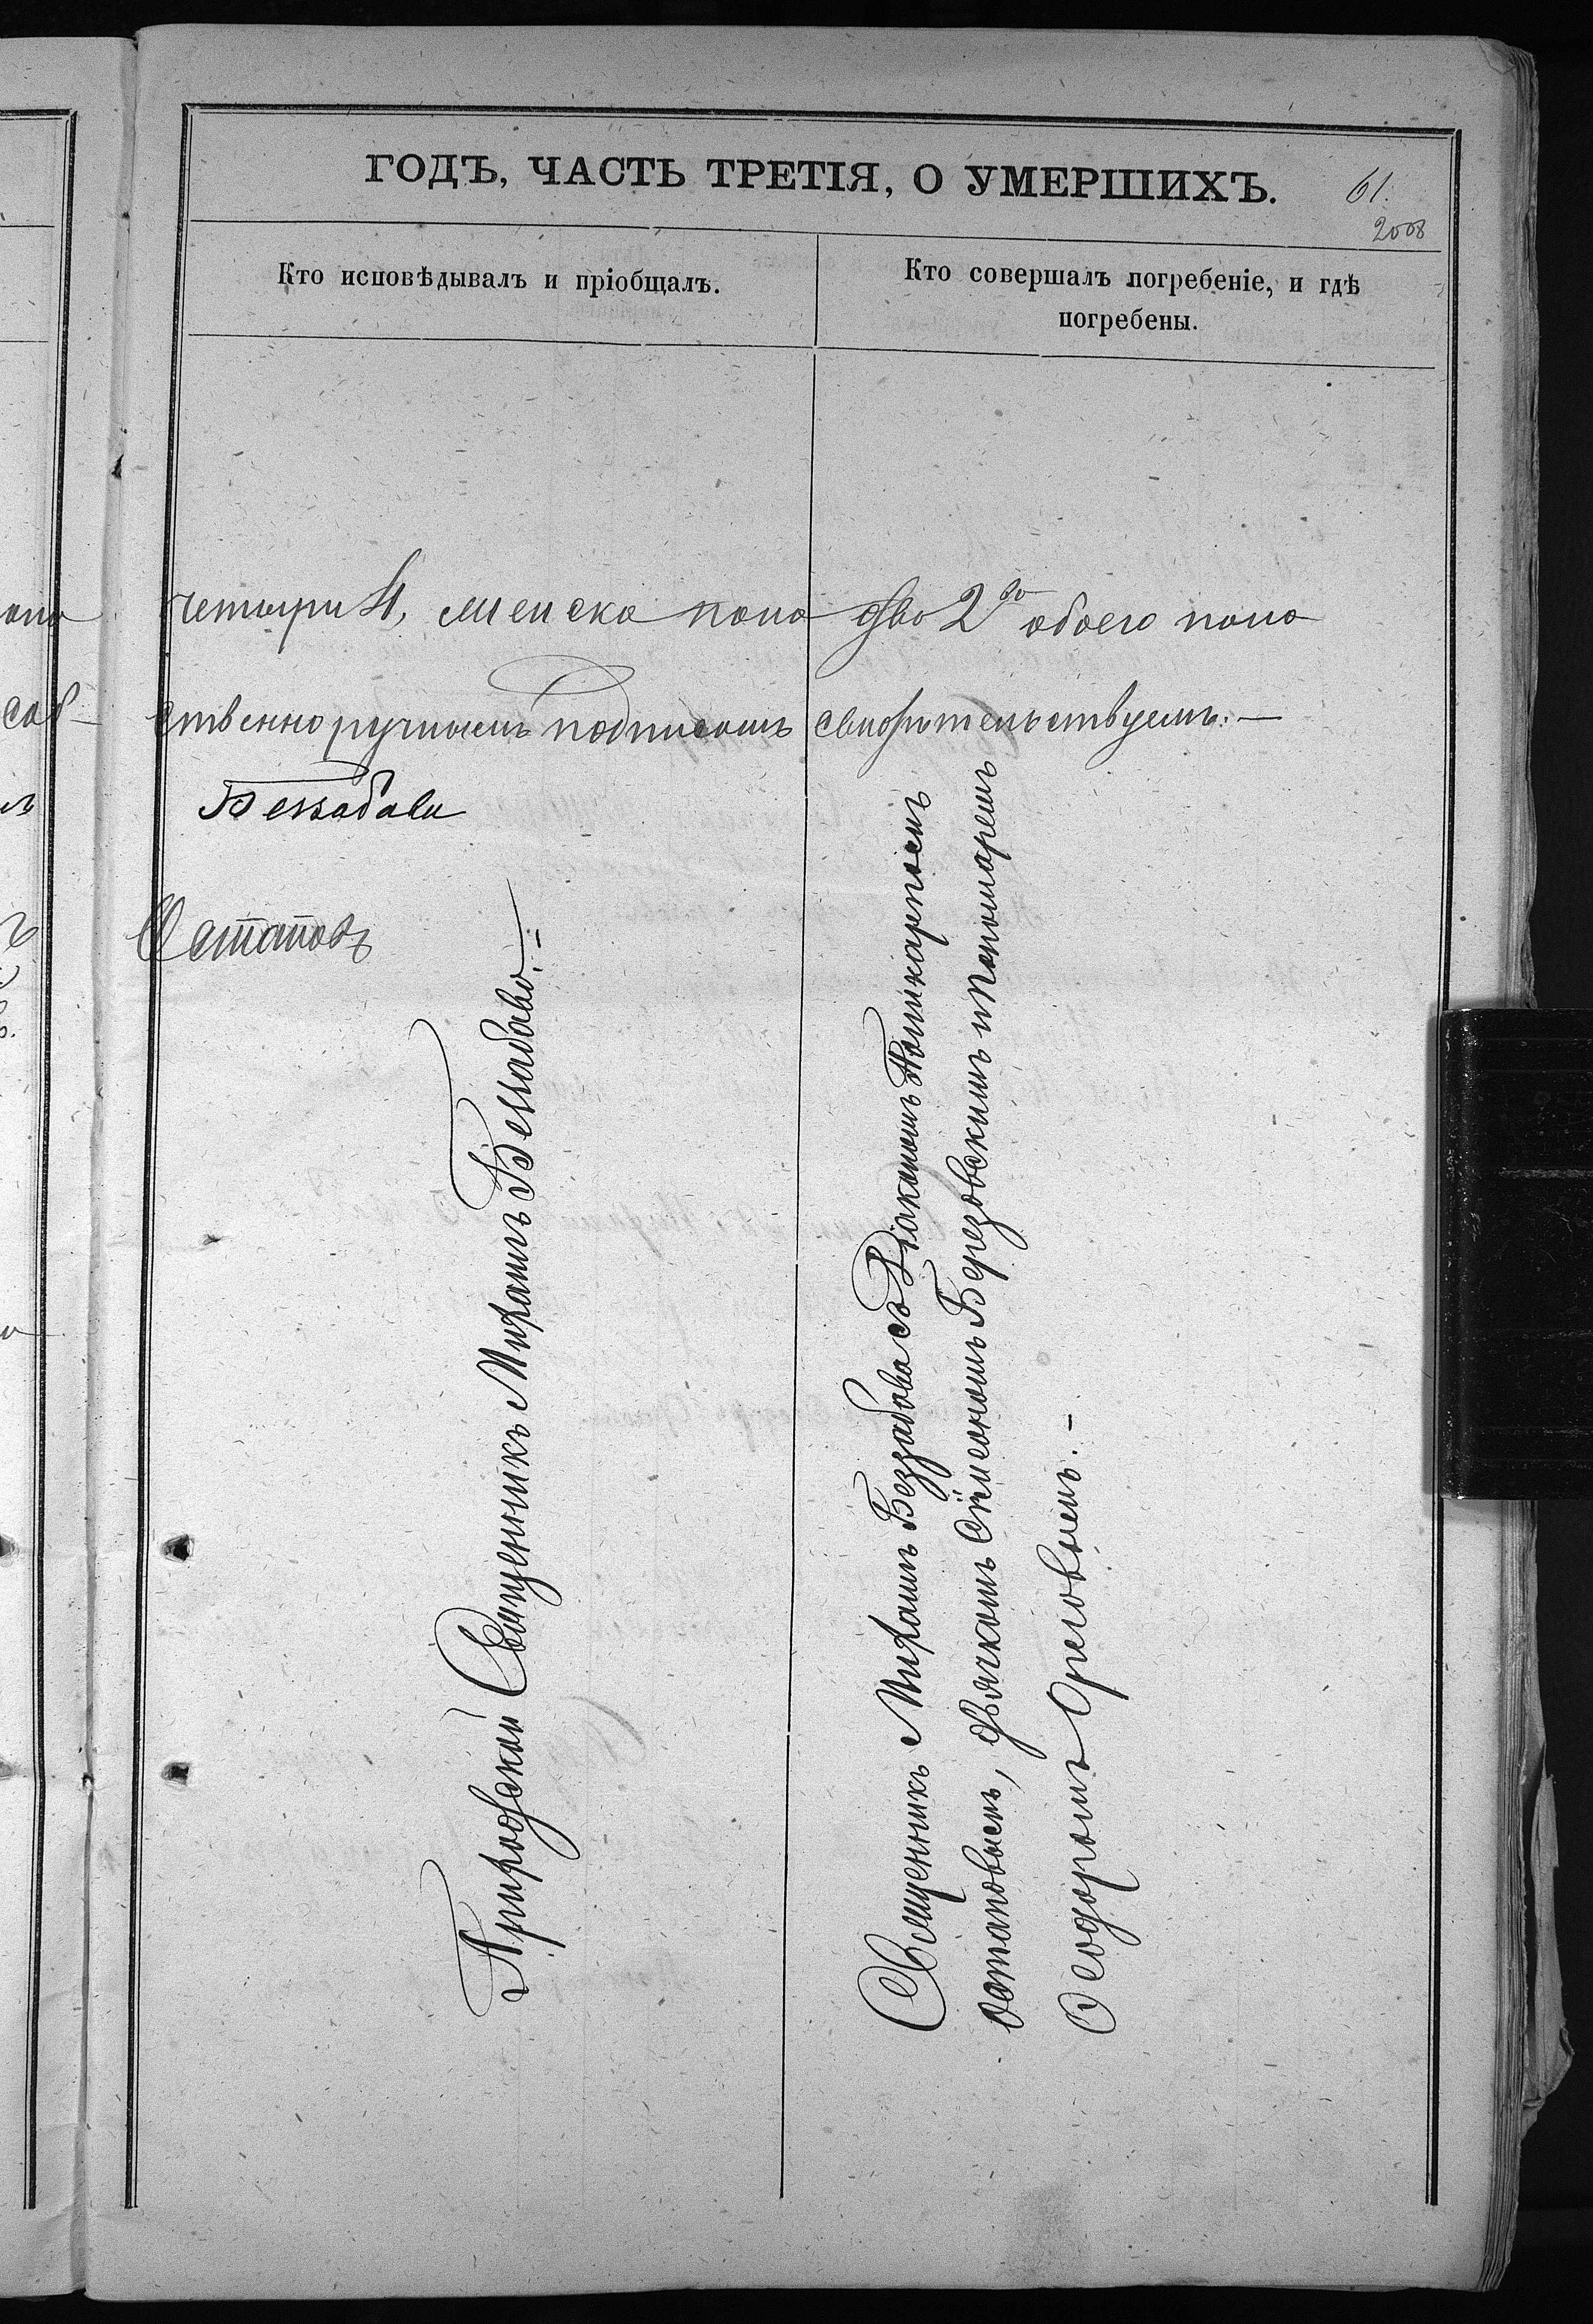 ГОДЪ, ЧАСТЬ ТРЕТІЯ, О УМЕРШИХЪ.
61.
2008
Кто исповѣдывалъ и пріобщалъ.
Кто совершалъ погребеніе, и гдѣ
погребены.
четыри 4, женска пола два 2 обоего пола
ственноручнымъ подписомъ свидѣтельствуемъ:—
Беззабава
Остаповъ
Приходскій Священникъ Михаилъ Беззабава.—
Священникъ Михаилъ Беззабава съ Діакономъ Поликарпомъ
Остаповымъ, дьячкомъ Сѵмеономъ Березовскимъ и Пономаремъ
Ѳеодоромъ Ореловымъ.—